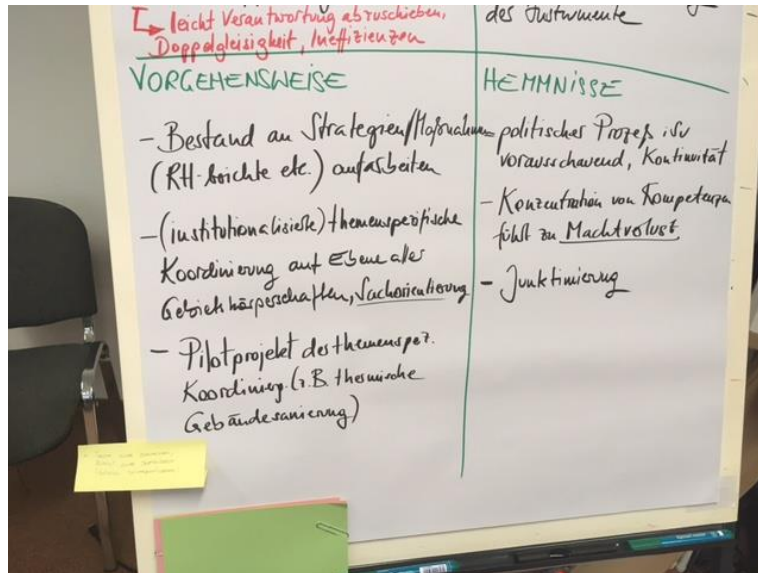 ↳ leicht Verantwortung abzuschieben,
Doppelgleisigkeit, Ineffizienzen
des Instrumente
VORGEHENSWEISE
- Bestand an Strategien/Maßnahmen
(RH-Berichte etc.) aufarbeiten
- (institutionalisierte) themenspezifische
Koordinierung auf Ebene aller
Gebietskörperschaften, Sachorientierung
- Pilotprojekt des themenspez.
Koordinierg. (z.B. thermische
Gebäudesanierung)
HEMMNISSE
- politischer Prozeß
vorausschauend, Kontinuität
- Konzentration von Kompetenzen
führt zu Machtverlust
- Junktimierung